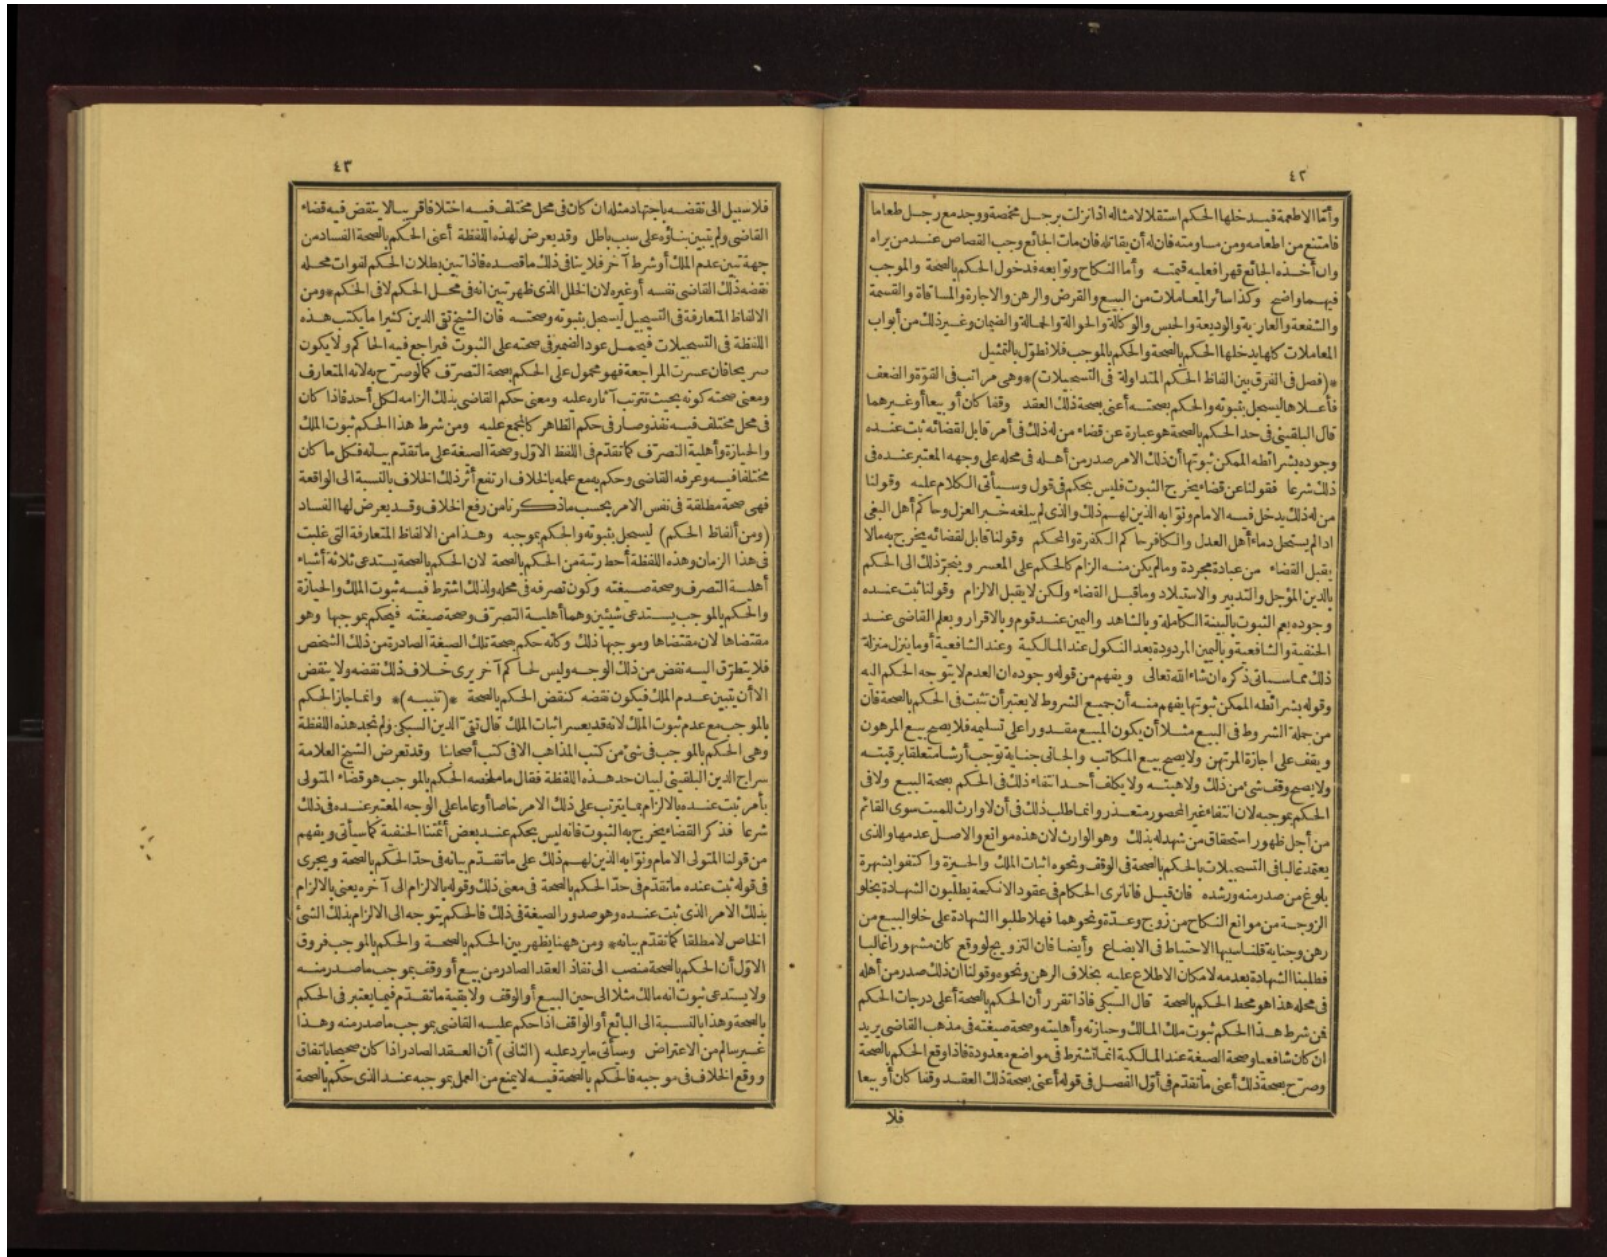 ٤٢
وأما الاطعمة فيدخلها الحكم استقلالا مثاله اذا نزلت برجل مخمصة ووجد مع رجل طعاما
فامتنع من اطعامه ومن مساومته فان له أن يقاتله فان مات الجائع وجب القصاص عند من يراه
وان أخذه الجائع قهرا فعليه قيمته وأما النكاح وتوابعه فدخول الحكم بالصحة والموجب
فيهما واضح وكذا سائر المعاملات من البيع والقرض والرهن والاجارة والمساقاة والقسمة
والشفعة والعارية والوديعة والحبس والوكالة والحوالة والحمالة والضمان وغير ذلك من أبواب
المعاملات كلها يدخلها الحكم بالصحة والحكم بالموجب فلا نطول بالتمثيل
*(فصل فى الفرق بين الفاظ الحكم المتداولة فى التسجيلات)* وهى مراتب فى القوة والضعف
فأعلاها ليسجل بثبوته والحكم بصحته أعنى بصحة ذلك العقد وقفا كان أو بيعا أو غيرهما
قال البلقينى فى حد الحكم بالصحة هو عبارة عن قضاء من له ذلك فى أمر قابل لقضائه ثبت عنده
وجوده بشرائطه الممكن ثبوتها أن ذلك الامر صدر من أهله فى محله على وجهه المعتبر عنده فى
ذلك شرعا فقولنا عن قضاء يخرج الثبوت فليس بحكم فى قول وسيأتى الكلام عليه وقولنا
من له ذلك يدخل فيه الامام ونوابه الذين لهم ذلك والذى لم يبلغه خبر العزل وحاكم أهل البغى
اذا لم يستحل دماء أهل العدل والكافر حاكم الكفرة والمحكم وقولنا قابل لقضائه يخرج به مالا
يقبل القضاء من عبادة مجردة ومالم يكن منه الزام كالحكم على المعسر وينجز ذلك الى الحكم
بالدين المؤجل والتدبير والاستيلاد وماقبل القضاء ولكن لا يقبل الالزام وقولنا ثبت عنده
وجوده يعم الثبوت بالبينة الكاملة وبالشاهد واليمين عند قوم وبالاقرار وبعلم القاضى عند
الحنفية والشافعية وباليمين المردودة بعد النكول عند المالكية وعند الشافعية أو ما ينزل منزلة
ذلك مما سيأتى ذكره ان شاء الله تعالى ويفهم من قوله وجوده ان العدم لا يتوجه الحكم اليه
وقوله بشرائطه الممكن ثبوتها يفهم منه أن جميع الشروط لا يعتبر أن تثبت فى الحكم بالصحة فان
من جملة الشروط فى البيع مثلا أن يكون المبيع مقدورا على تسليمه فلا يصح بيع المرهون
ويقف على اجازة المرتهن ولا يصح بيع المكاتب والجانى جناية توجب أرشا متعلقا برقبته
ولا يصح وقف شئ من ذلك ولا هبته ولا يكلف أحد انتفاء ذلك فى الحكم بصحة البيع ولا فى
الحكم بموجبه لان انتفاء غير المحصور متعذر وانما طلب ذلك فى أن لا وارث للميت سوى القائم
من أجل ظهور استحقاق من شهد له بذلك وهو الوارث لان هذه موانع والاصل عدمها والذى
يعتمد غالبا فى التسجيلات بالحكم بالصحة فى الوقف ونحوه اثبات الملك والحيزة واكتفوا بشهرة
بلوغ من صدر منه ورشده فان قيل فانا نرى الحكام فى عقود الانكحة يطلبون الشهادة بخلو
الزوجة من موانع النكاح من زوج وعدة ونحوهما فهلا طلبوا الشهادة على خلو البيع من
رهن وجناية قلنا سببها الاحتياط فى الابضاع وأيضا فان التزويج لو وقع كان مشهورا غالبا
فطلبنا الشهادة بعدمه لامكان الاطلاع عليه بخلاف الرهن ونحوه وقولنا ان ذلك صدر من أهله
فى محله هذا هو محط الحكم بالصحة قال السبكى فاذا تقرر أن الحكم بالصحة أعلى درجات الحكم
فمن شرط هذا الحكم ثبوت ملك المالك وحيازته وأهليته وصحة صيغته فى مذهب القاضى يريد
ان كان شافعيا وصحة الصيغة عند المالكية انما تشترط فى مواضع معدودة فاذا وقع الحكم بالصحة
وصرح بصحة ذلك أعنى ما تقدم فى أول الفصل فى قوله أعنى بصحة ذلك العقد وقفا كان أو بيعا
فلا
٤٣
فلا سبيل الى نقضه باجتهاد مثله ان كان فى محل مختلف فيه اختلافا قريبا لا ينقض فيه قضاء
القاضى ولم يتبين بناؤه على سبب باطل وقد يعرض لهذه اللفظة أعنى الحكم بالصحة الفساد من
جهة تبين عدم الملك أو شرط آخر فلا ينافى ذلك ما قصده فاذا تبين بطلان الحكم لفوات محله
نقضه ذلك القاضى نفسه أو غيره لان الخلل الذى ظهر تبين انه فى محل الحكم لا فى الحكم * ومن
الالفاظ المتعارفة فى التسجيل ليسجل بثبوته وصحته فان الشيخ تقى الدين كثيرا ما يكتب هذه
اللفظة فى التسجيلات فيحمل عود الضمير فى صحته على الثبوت فيراجع فيه الحاكم ولا يكون
صريحا فان عسرت المراجعة فهو محمول على الحكم بصحة التصرف كما لو صرح به لانه المتعارف
ومعنى صحته كونه بحيث تترتب آثاره عليه ومعنى حكم القاضى بذلك الزامه لكل أحد فاذا كان
فى محل مختلف فيه نفذ وصار فى حكم الظاهر كالمجمع عليه ومن شرط هذا الحكم ثبوت الملك
والحيازة وأهلية التصرف كما تقدم فى اللفظ الاول وصحة الصيغة على ما تقدم بيانه فكل ما كان
مختلفا فيه وعرفه القاضى وحكم به مع علمه بالخلاف ارتفع أثر ذلك الخلاف بالنسبة الى الواقعة
فهى صحة مطلقة فى نفس الامر بحسب ما ذكرنا من رفع الخلاف وقد يعرض لها الفساد
(ومن ألفاظ الحكم) ليسجل بثبوته والحكم بموجبه وهذا من الالفاظ المتعارفة التى غلبت
فى هذا الزمان وهذه اللفظة أحط رتبة من الحكم بالصحة لان الحكم بالصحة يستدعى ثلاثة أشياء
أهلية التصرف وصحة صيغته وكون تصرفه فى محله ولذلك اشترط فيه ثبوت الملك والحيازة
والحكم بالموجب يستدعى شيئين وهما أهلية التصرف وصحة صيغته فيحكم بموجبها وهو
مقتضاها لان مقتضاها وموجبها ذلك وكأنه حكم بصحة تلك الصيغة الصادرة من ذلك الشخص
فلا يتطرق اليه نقض من ذلك الوجه وليس لحاكم آخر يرى خلاف ذلك نقضه ولا ينتقض
الا أن يتبين عدم الملك فيكون نقضه كنقض الحكم بالصحة *(تنبيه)* وانما جاز الحكم
بالموجب مع عدم ثبوت الملك لانه قد يعسر اثبات الملك قال تقى الدين السبكى ولم نجد هذه اللفظة
وهى الحكم بالموجب فى شئ من كتب المذاهب الا فى كتب أصحابنا وقد تعرض الشيخ العلامة
سراج الدين البلقينى لبيان حد هذه اللفظة فقال ما ملخصه الحكم بالموجب هو قضاء المتولى
بأمر ثبت عنده بالالزام بما يترتب على ذلك الامر خاصا أو عاما على الوجه المعتبر عنده فى ذلك
شرعا فذكر القضاء يخرج به الثبوت فانه ليس بحكم عند بعض أئمتنا الحنفية كما سيأتى ويفهم
من قولنا المتولى الامام ونوابه الذين لهم ذلك على ما تقدم بيانه فى حد الحكم بالصحة ويجرى
فى قوله ثبت عنده ما تقدم فى حد الحكم بالصحة فى معنى ذلك وقوله بالالزام الى آخره يعنى بالالزام
بذلك الامر الذى ثبت عنده وهو صدور الصيغة فى ذلك فالحكم يتوجه الى الالزام بذلك الشئ
الخاص لا مطلقا كما تقدم بيانه * ومن ههنا يظهر بين الحكم بالصحة والحكم بالموجب فروق
الاول أن الحكم بالصحة منصب الى نفاذ العقد الصادر من بيع أو وقف بموجب ما صدر منه
ولا يستدعى ثبوت انه مالك مثلا الى حين البيع أو الوقف ولا بقية ما تقدم فيما يعتبر فى الحكم
بالصحة وهذا بالنسبة الى البائع أو الواقف اذا حكم عليه القاضى بموجب ما صدر منه وهذا
غير سالم من الاعتراض وسيأتى ما يرد عليه (الثانى) أن العقد الصادر اذا كان صحيحا باتفاق
ووقع الخلاف فى موجبه فالحكم بالصحة فيه لا يمنع من العمل بموجبه عند الذى حكم بالصحة